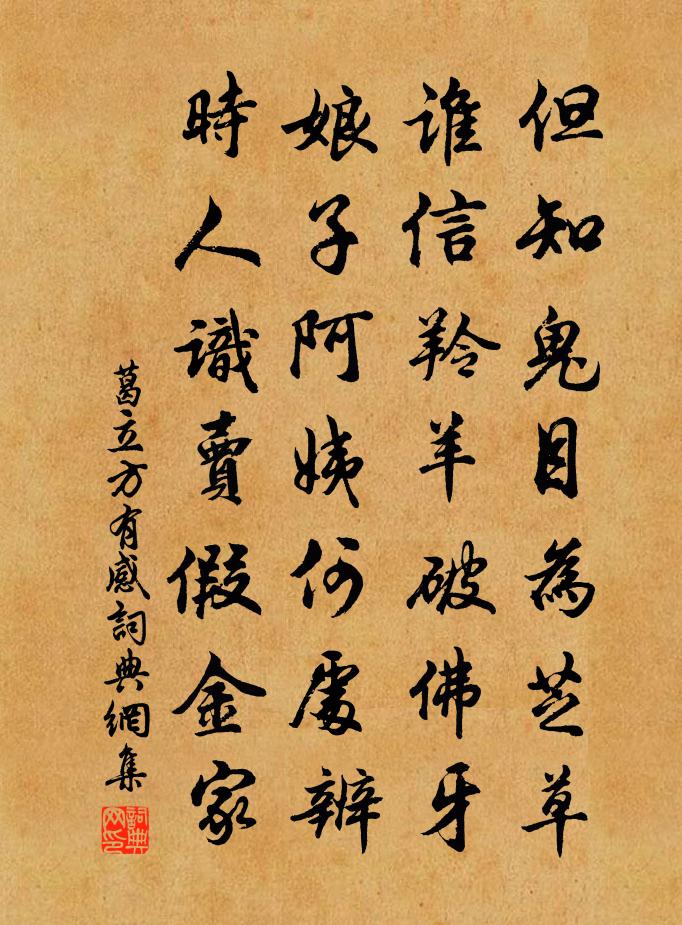 但知鬼目為芝草
誰信羚羊破佛牙
娘子阿姨何處辨
時人識賣假金家
葛立方有感詞典網集
詞典網印